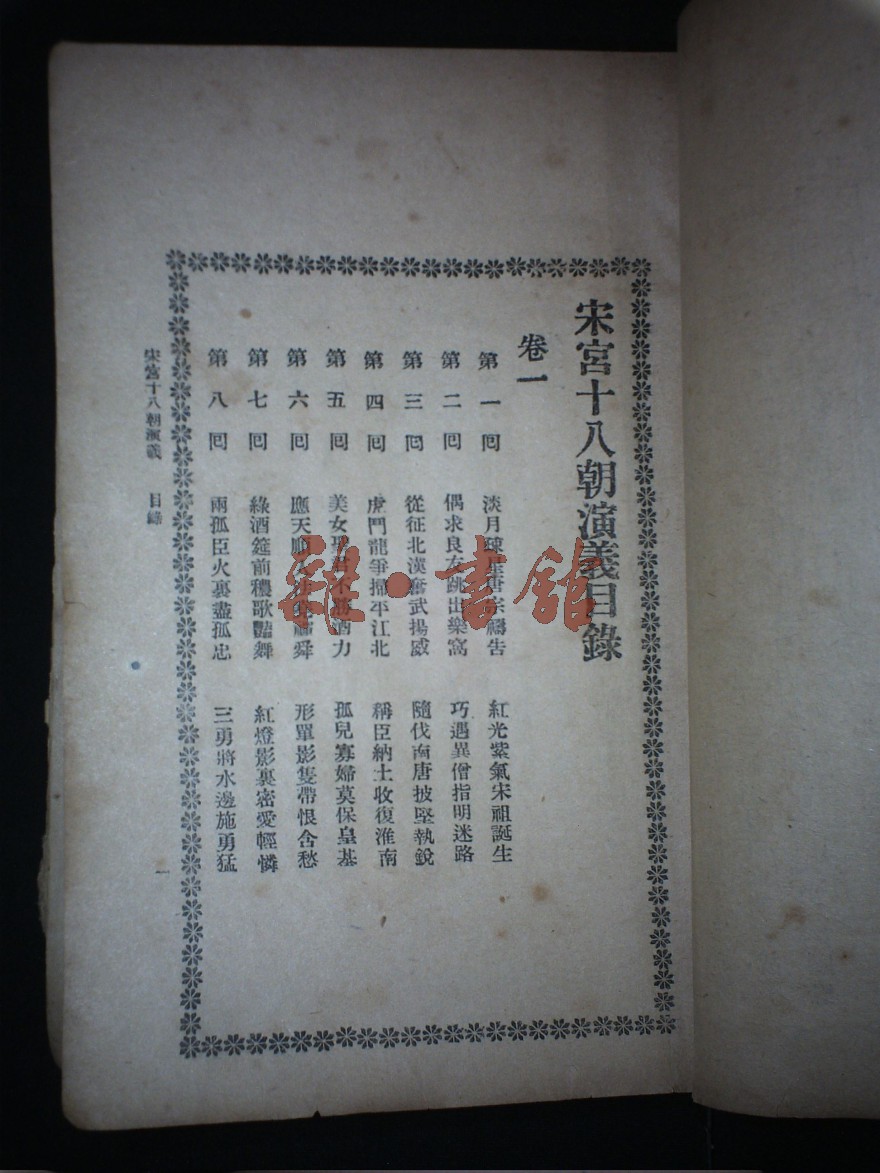 宋宮十八朝演義目錄
卷一
第一回 淡月疎星唐宗禱告 紅光紫氣宋祖誕生
第二回 偶求良友跳出樂窩 巧遇異僧指明迷路
第三回 從征北漢奮武揚威 隨伐南唐披堅執銳
第四回 虎鬥龍爭掃平江北 稱臣納土收復淮南
第五回 美女 君不勝酒力 孤兒寡婦莫保皇基
第六回 應天順人 舜 形單影隻帶恨含愁
第七回 綠酒筵前穠歌豔舞 紅燈影裏密愛輕憐
第八回 兩孤臣火裏盡孤忠 三勇將水邊施勇猛
宋宮十八朝演義 目錄 一
雜·書館